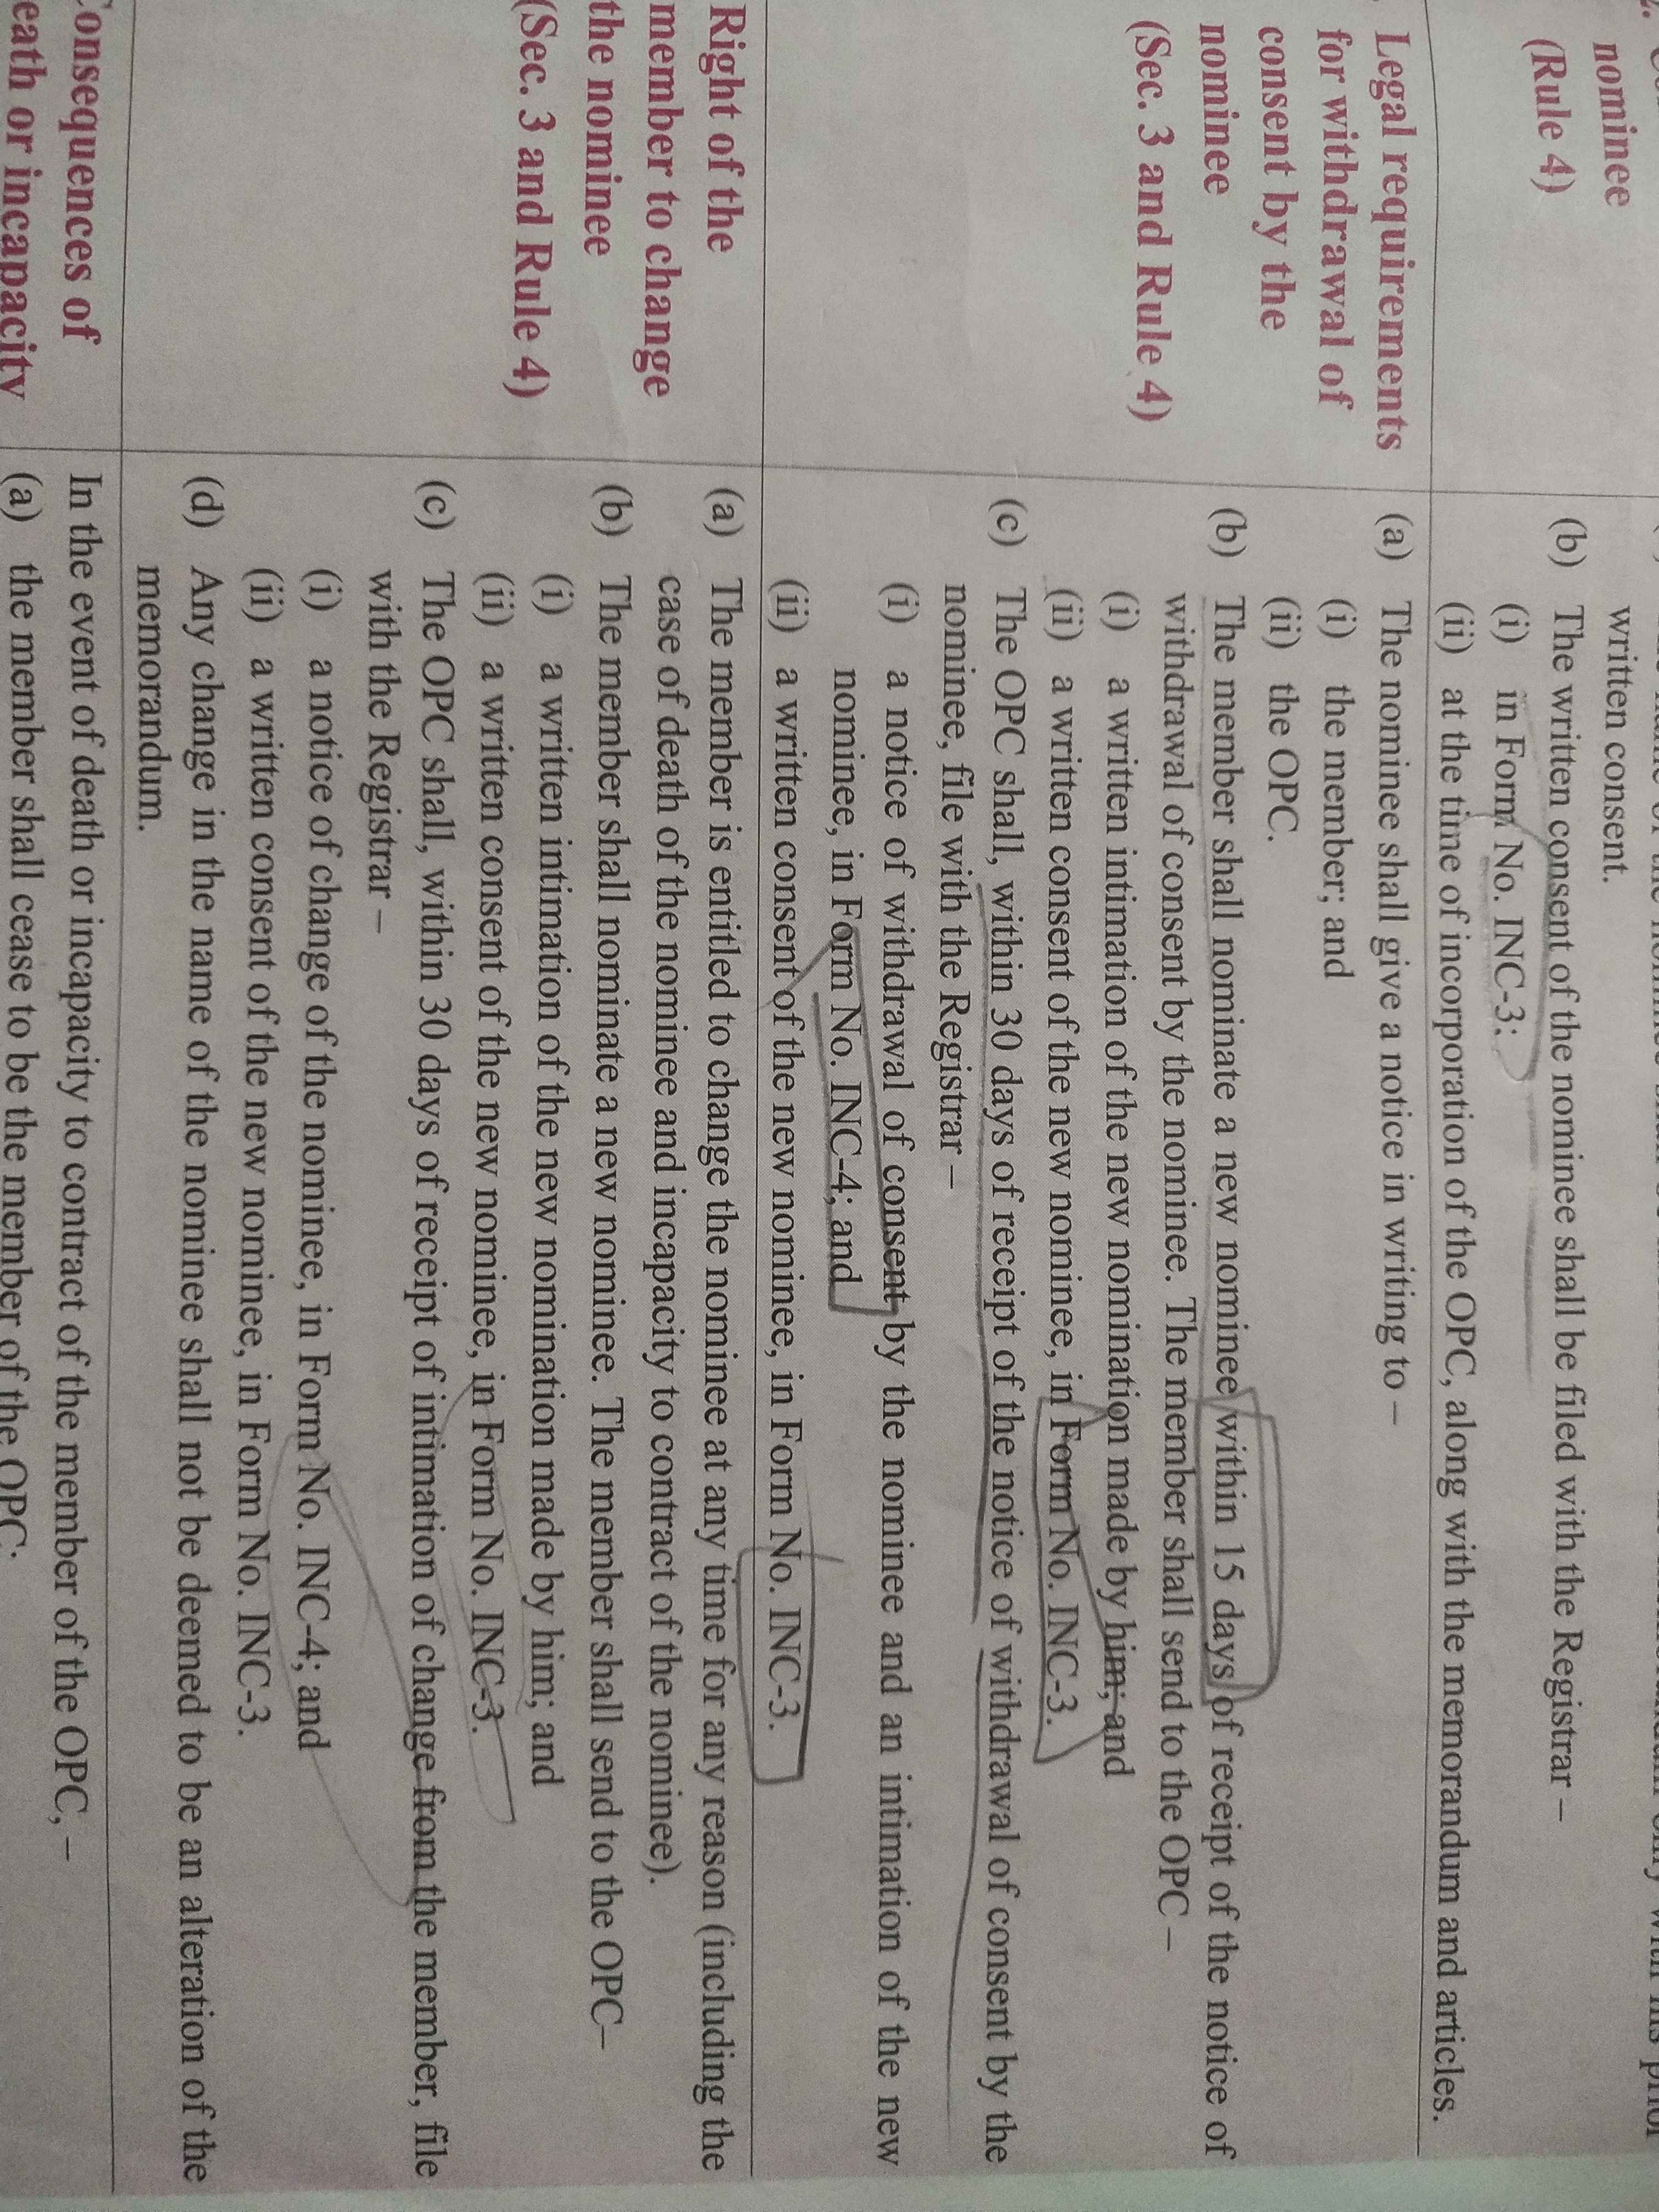 nominee
(Rule 4)
written consent.
(b) The written consent of the nominee shall be filed with the Registrar –
(i) in Form No. INC-3;
(ii) at the time of incorporation of the OPC, along with the memorandum and articles.
Legal requirements
for withdrawal of
consent by the
nominee
(Sec. 3 and Rule 4)
(a) The nominee shall give a notice in writing to –
(i) the member; and
(ii) the OPC.
(b) The member shall nominate a new nominee within 15 days of receipt of the notice of
withdrawal of consent by the nominee. The member shall send to the OPC –
(i) a written intimation of the new nomination made by him; and
(ii) a written consent of the new nominee, in Form No. INC-3.
(c) The OPC shall, within 30 days of receipt of the notice of withdrawal of consent by the
nominee, file with the Registrar –
(i) a notice of withdrawal of consent by the nominee and an intimation of the new
nominee, in Form No. INC-4; and
(ii) a written consent of the new nominee, in Form No. INC-3.
Right of the
member to change
the nominee
(Sec. 3 and Rule 4)
(a) The member is entitled to change the nominee at any time for any reason (including the
case of death of the nominee and incapacity to contract of the nominee).
(b) The member shall nominate a new nominee. The member shall send to the OPC–
(i) a written intimation of the new nomination made by him; and
(ii) a written consent of the new nominee, in Form No. INC-3.
(c) The OPC shall, within 30 days of receipt of intimation of change from the member, file
with the Registrar –
(i) a notice of change of the nominee, in Form No. INC-4; and
(ii) a written consent of the new nominee, in Form No. INC-3.
(d) Any change in the name of the nominee shall not be deemed to be an alteration of the
memorandum.
Consequences of
eath or incapacity
In the event of death or incapacity to contract of the member of the OPC, –
(a) the member shall cease to be the member of the OPC;